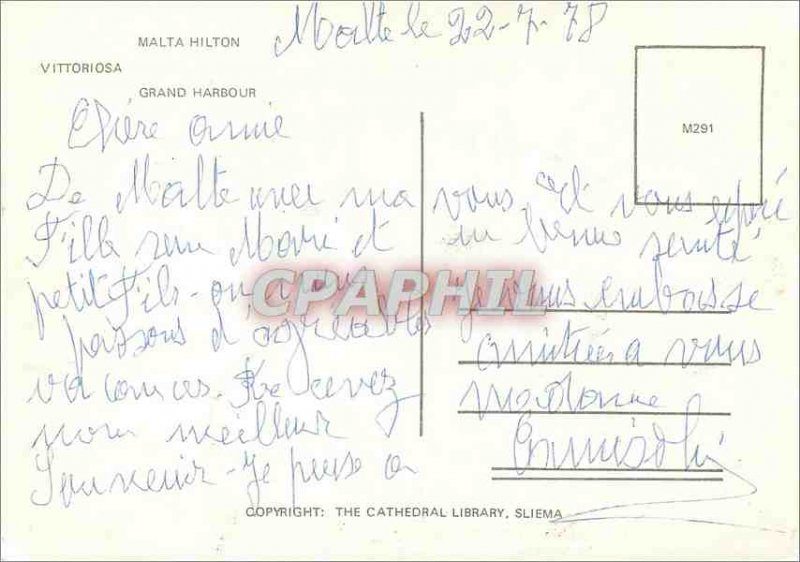 Malte le 22-7-78
MALTA HILTON
VITTORIOSA
GRAND HARBOUR
M291
Chère Annie
De Malte avec ma
Fille son Mari et
petit Fils - ou nous
passons d'agréables
vacances. Recevez
nom meilleur
Souvenir - Je pense a
vous et vous espére
en bonne senté
je vous embrasse
amitiée a vous
madame
CPAPHIL
COPYRIGHT: THE CATHEDRAL LIBRARY, SLIEMA